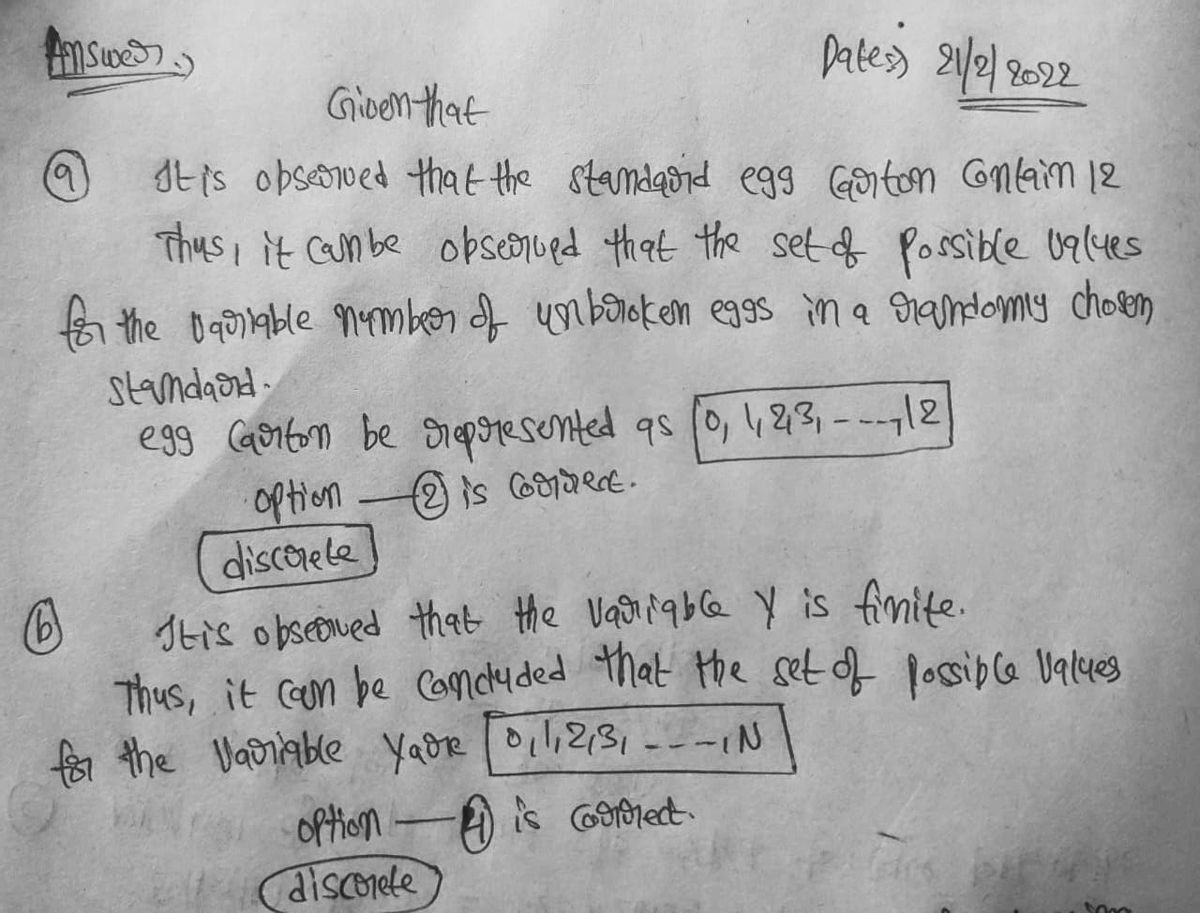 Answer:
Date:) 21/2/2022
Given that
(a) It is observed that the standard egg Carton Contain 12
Thus, it can be observed that the set of Possible values
for the variable number of unbroken eggs in a randomly chosen
standard.
egg Carton be represented as 0, 1, 2, 3, ----, 12
option — (2) is correct.
discrete
(b) It is observed that the variable Y is finite.
Thus, it can be concluded that the set of possible Values
for the Variable Y are 0, 1, 2, 3, ----, N
option — (4) is correct.
discrete